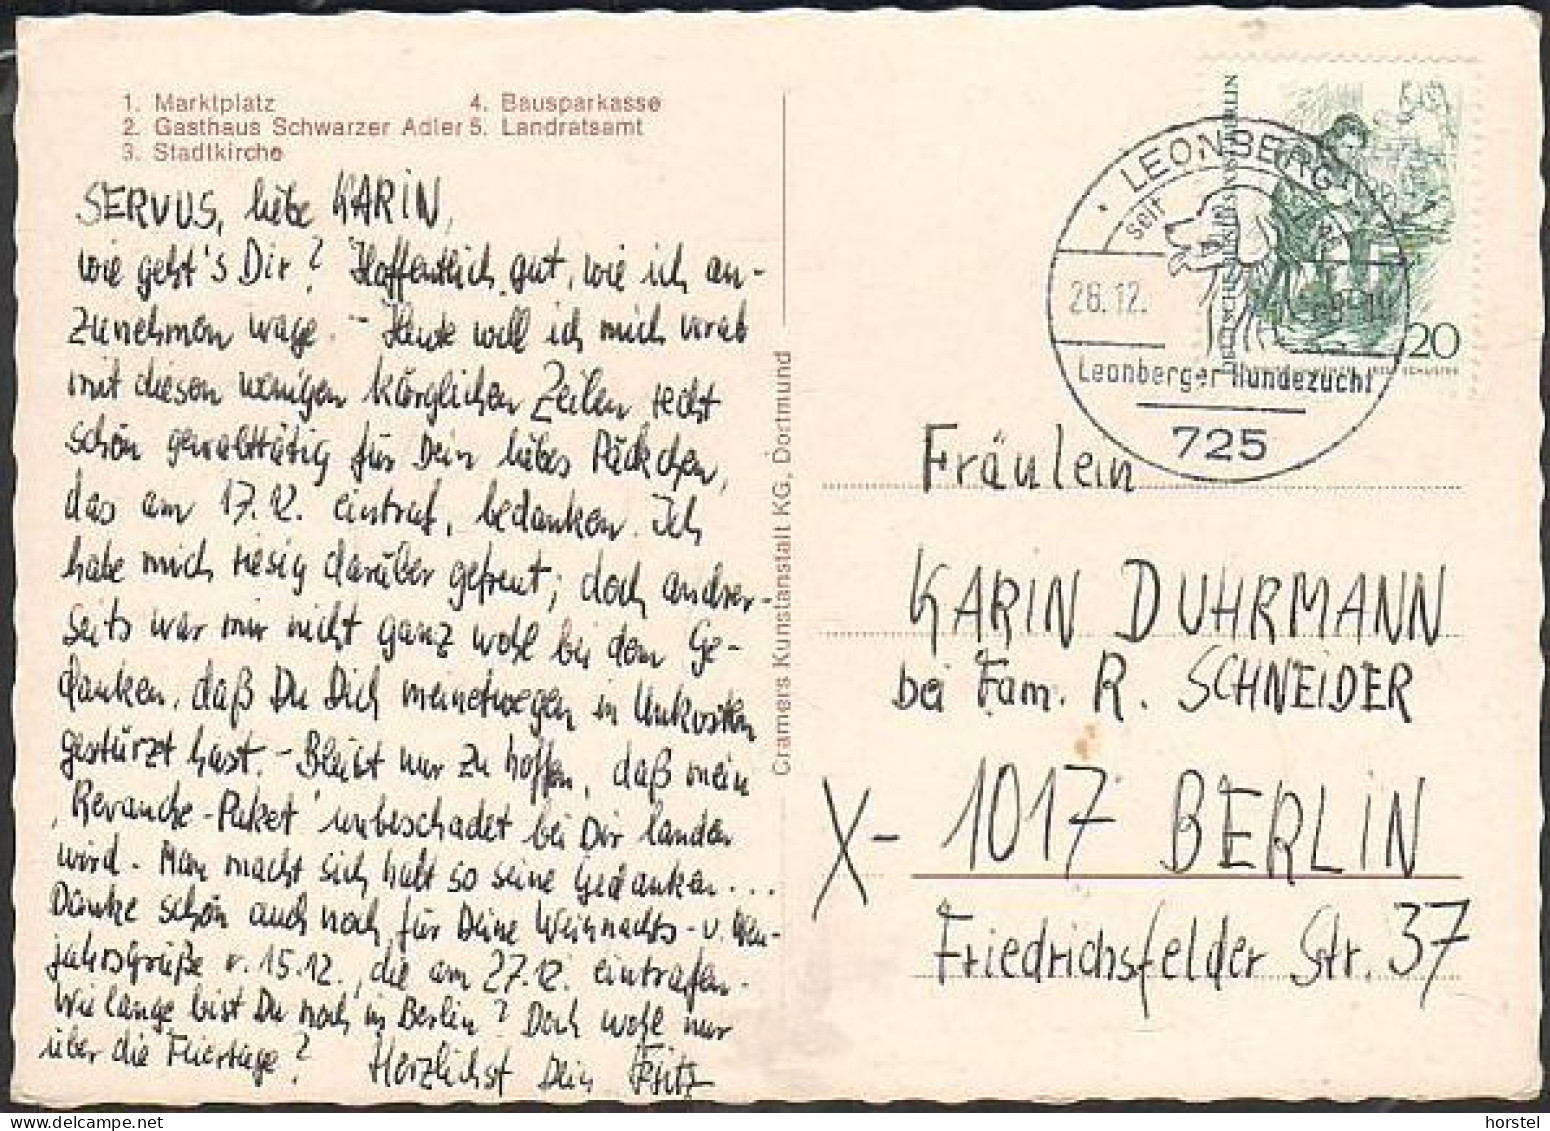 1. Marktplatz
2. Gasthaus Schwarzer Adler
3. Stadtkirche
4. Bausparkasse
5. Landratsamt
SERVUS, liebe KARIN,
wie geht's Dir? Hoffentlich gut, wie ich an-
zunehmen wage. – Heute will ich mich vorab
mit diesen wenigen kärglichen Zeilen recht
schön gewalttätig für Dein liebes Päckchen,
das am 17.12. eintraf, bedanken. Ich
habe mich riesig darüber gefreut; doch andrer-
seits war mir nicht ganz wohl bei dem Ge-
danken, daß Du Dich meinetwegen in Unkosten
gestürzt hast. – Bleibt nur zu hoffen, daß mein
'Revanche-Paket' unbeschadet bei Dir landen
wird. Man macht sich halt so seine Gedanken...
Danke schön auch noch für Deine Weihnachts- u. Neu-
jahrsgrüße v. 15.12., die am 27.12. eintrafen.
Wie lange bist Du noch in Berlin? Doch wohl nur
über die Feiertage? Herzlichst Dein Fritz
Cramers Kunstanstalt KG, Dortmund
LEONBERG
seit
28.12.
Leonberger Hundezucht
725
20
Fräulein
KARIN DUHRMANN
bei Fam. R. SCHNEIDER
X- 1017 BERLIN
Friedrichsfelder Str. 37
horstel